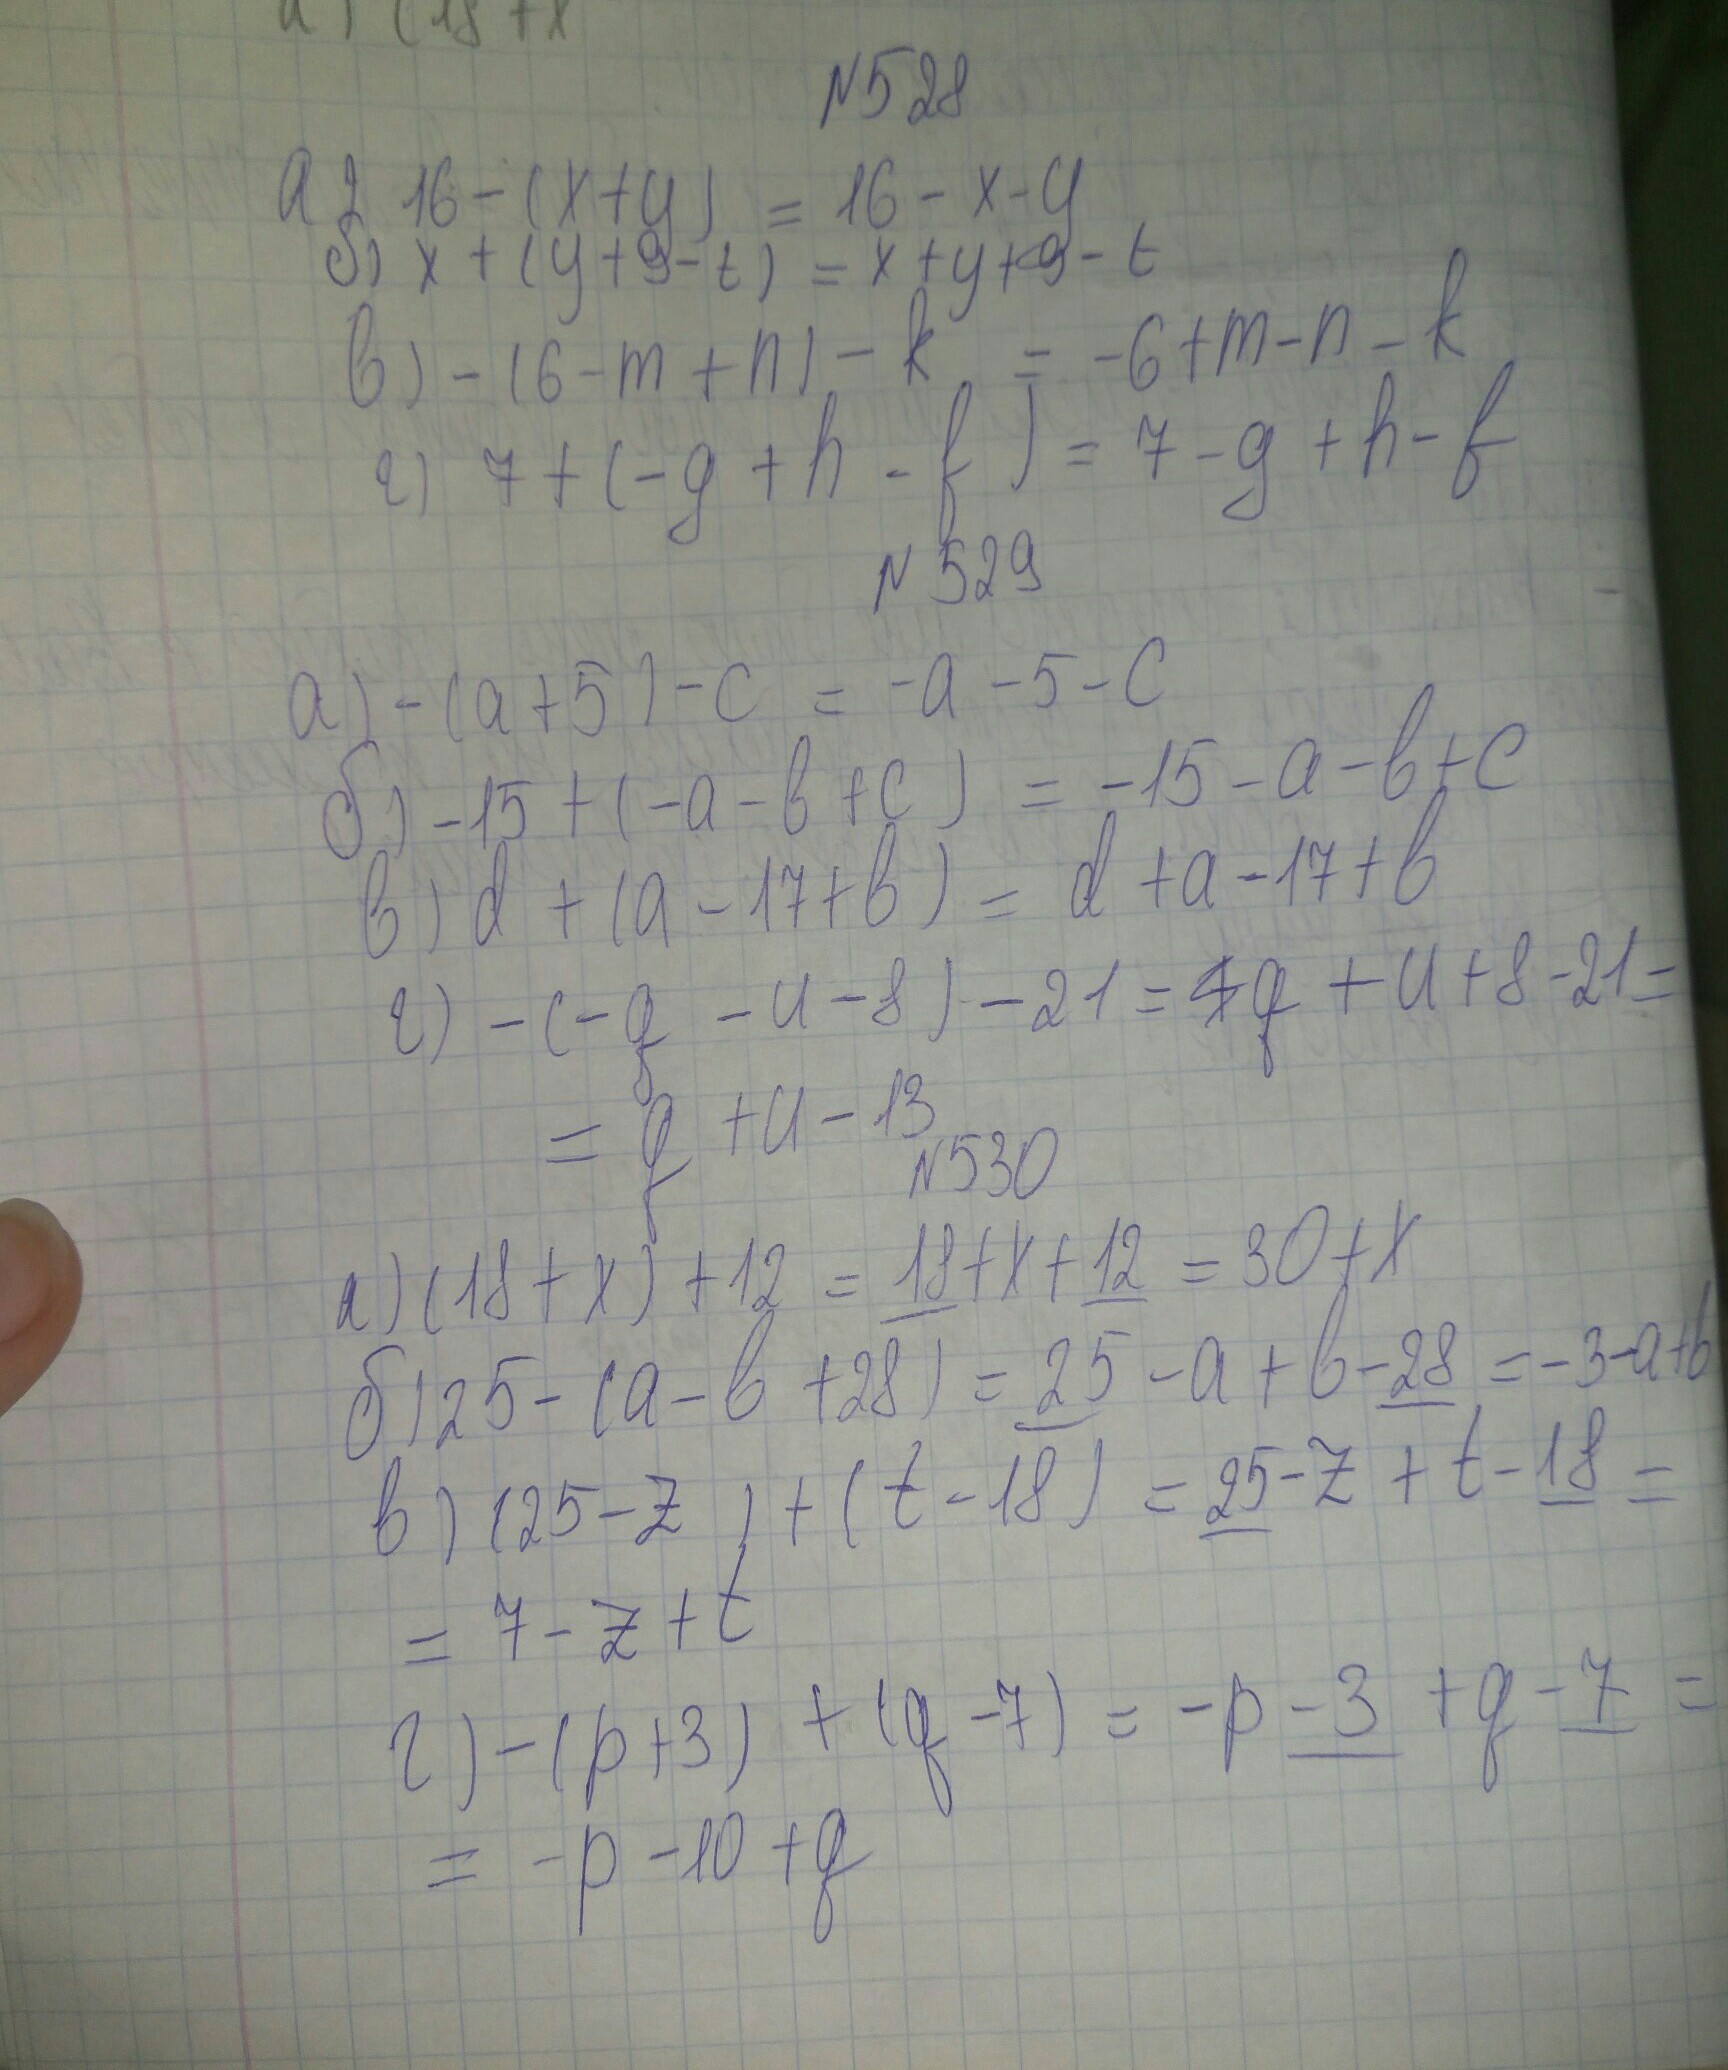 а) (18 + x
N528
а) 16 - (x + y) = 16 - x - y
б) x + (y + 9 - t) = x + y + 9 - t
в) - (6 - m + n) - k = -6 + m - n - k
г) 7 + (-g + h - f) = 7 - g + h - f
N529
а) - (a + 5) - c = -a - 5 - c
б) -15 + (-a - b + c) = -15 - a - b + c
в) d + (a - 17 + b) = d + a - 17 + b
г) - (-q - u - 8) - 21 = q + u + 8 - 21 =
= q + u - 13
N530
а) (18 + x) + 12 = 18 + x + 12 = 30 + x
б) 25 - (a - b + 28) = 25 - a + b - 28 = -3 - a + b
в) (25 - z) + (t - 18) = 25 - z + t - 18 =
= 7 - z + t
г) - (p + 3) + (q - 7) = -p - 3 + q - 7 =
= -p - 10 + q